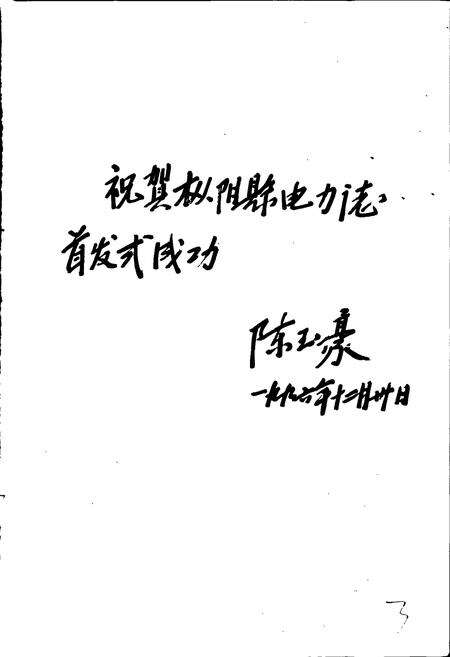 祝贺枞阳縣电力志
首发式成功
陈玉豪
一九九六年十二月卅日
3